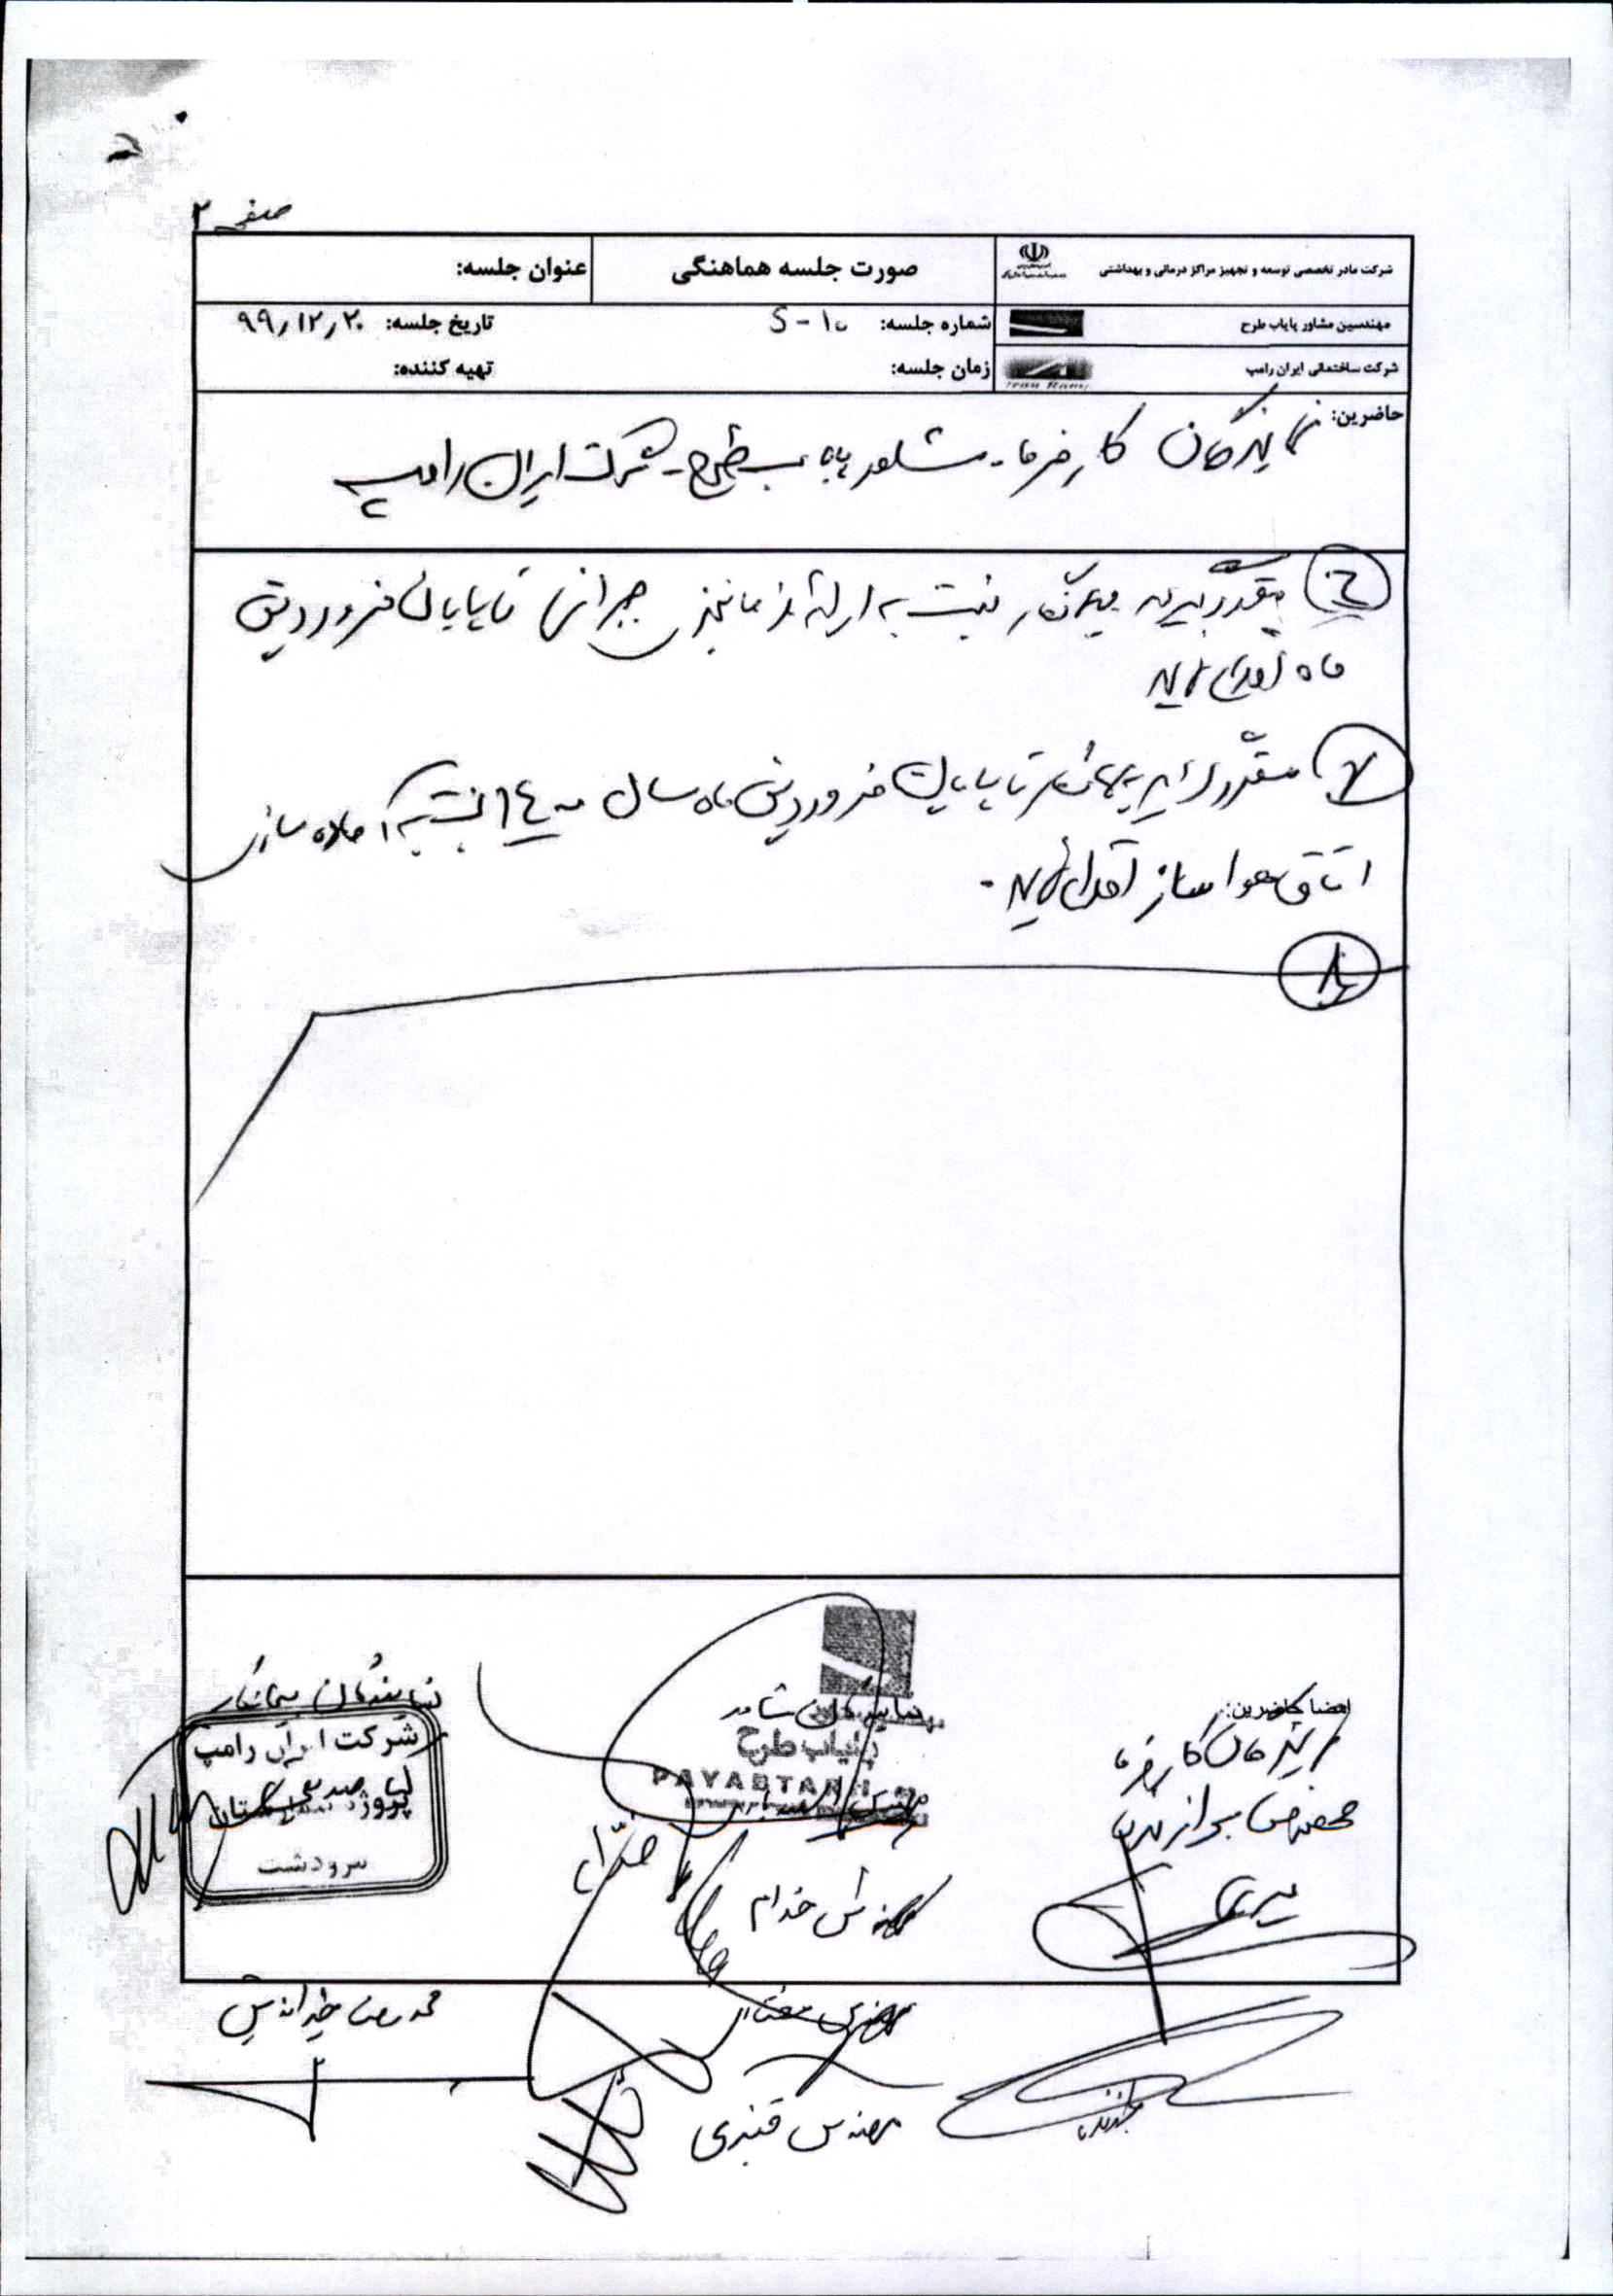 صفحه ۲
شرکت مادر تخصصی توسعه و تجهیز مراکز درمانی و بهداشتی
صورت جلسه هماهنگی
عنوان جلسه:
مهندسین مشاور پایاب طرح
شماره جلسه: ۱۰-S
تاریخ جلسه: ۹۹/۱۲/۲۰
شرکت ساختمانی ایران رامپ
زمان جلسه:
تهیه کننده:
حاضرین: نمایندگان کارفرما - مشاور پایاب طرح - شرکت ایران رامپ
مقرر گردید پیمانکار نسبت به ارائه زمانبندی جبرانی تا پایان فروردین
ماه اقدام نماید
۷ مقرر گردید پیمانکار تا پایان فروردین ماه سال ۱۴۰۰ نسبت به آماده سازی
اتاق هوا ساز اقدام نماید.
۸
امضا حاضرین:
نمایندگان کارفرما
مهندس
نمایندگان مشاور
پایاب طرح
PAYABTARH
مهندس
مهندس خدام
مهندس
مهندس قنبری
نمایندگان پیمانکار
شرکت ایران رامپ
پروژه
مرودشت
محمدرضا